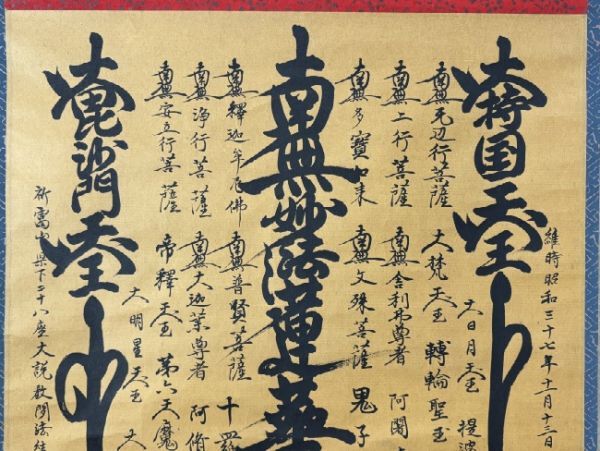 維時昭和三十七年十一月十三日
大持国天王
大日月天王 提婆
南無無辺行菩薩 大梵天王 轉輪聖王
南無上行菩薩 南無舎利弗尊者 阿闍
南無多寶如来 南無文殊菩薩 鬼子
南無妙法蓮華
南無釋迦牟尼佛 南無普賢菩薩 十羅
南無浄行菩薩 南無大迦葉尊者 阿脩
南無安立行菩薩 帝釋天王 第六天魔
大明星天王 大
大毘沙門天王
於富山県下二十八座大説教開法